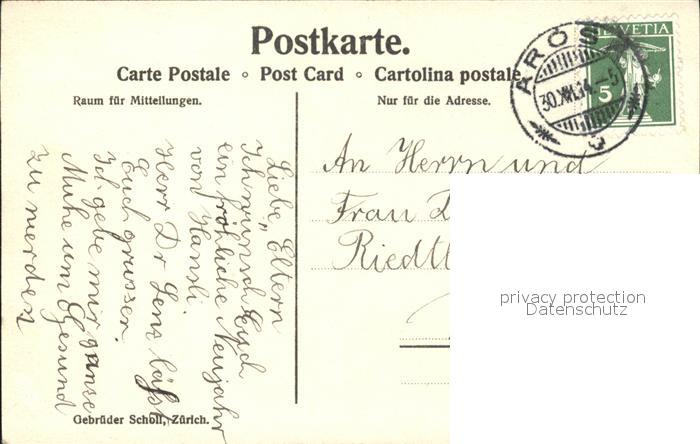 Postkarte.
Carte Postale ◦ Post Card ◦ Cartolina postale
Raum für Mitteilungen.
Nur für die Adresse.
HELVETIA
5
AROSA
30.XII.14.–5
An Herrn und
Frau D
Riedtl
Liebe Eltern
Ich wünsch Euch
ein fröhliche Neujahr
von Hansli
Herr Dr Lenz lässt
Euch grüssen.
Ich gebe mir ganze
Mühe um Gesund
zu werden
Gebrüder Scholl, Zürich.
privacy protection
Datenschutz